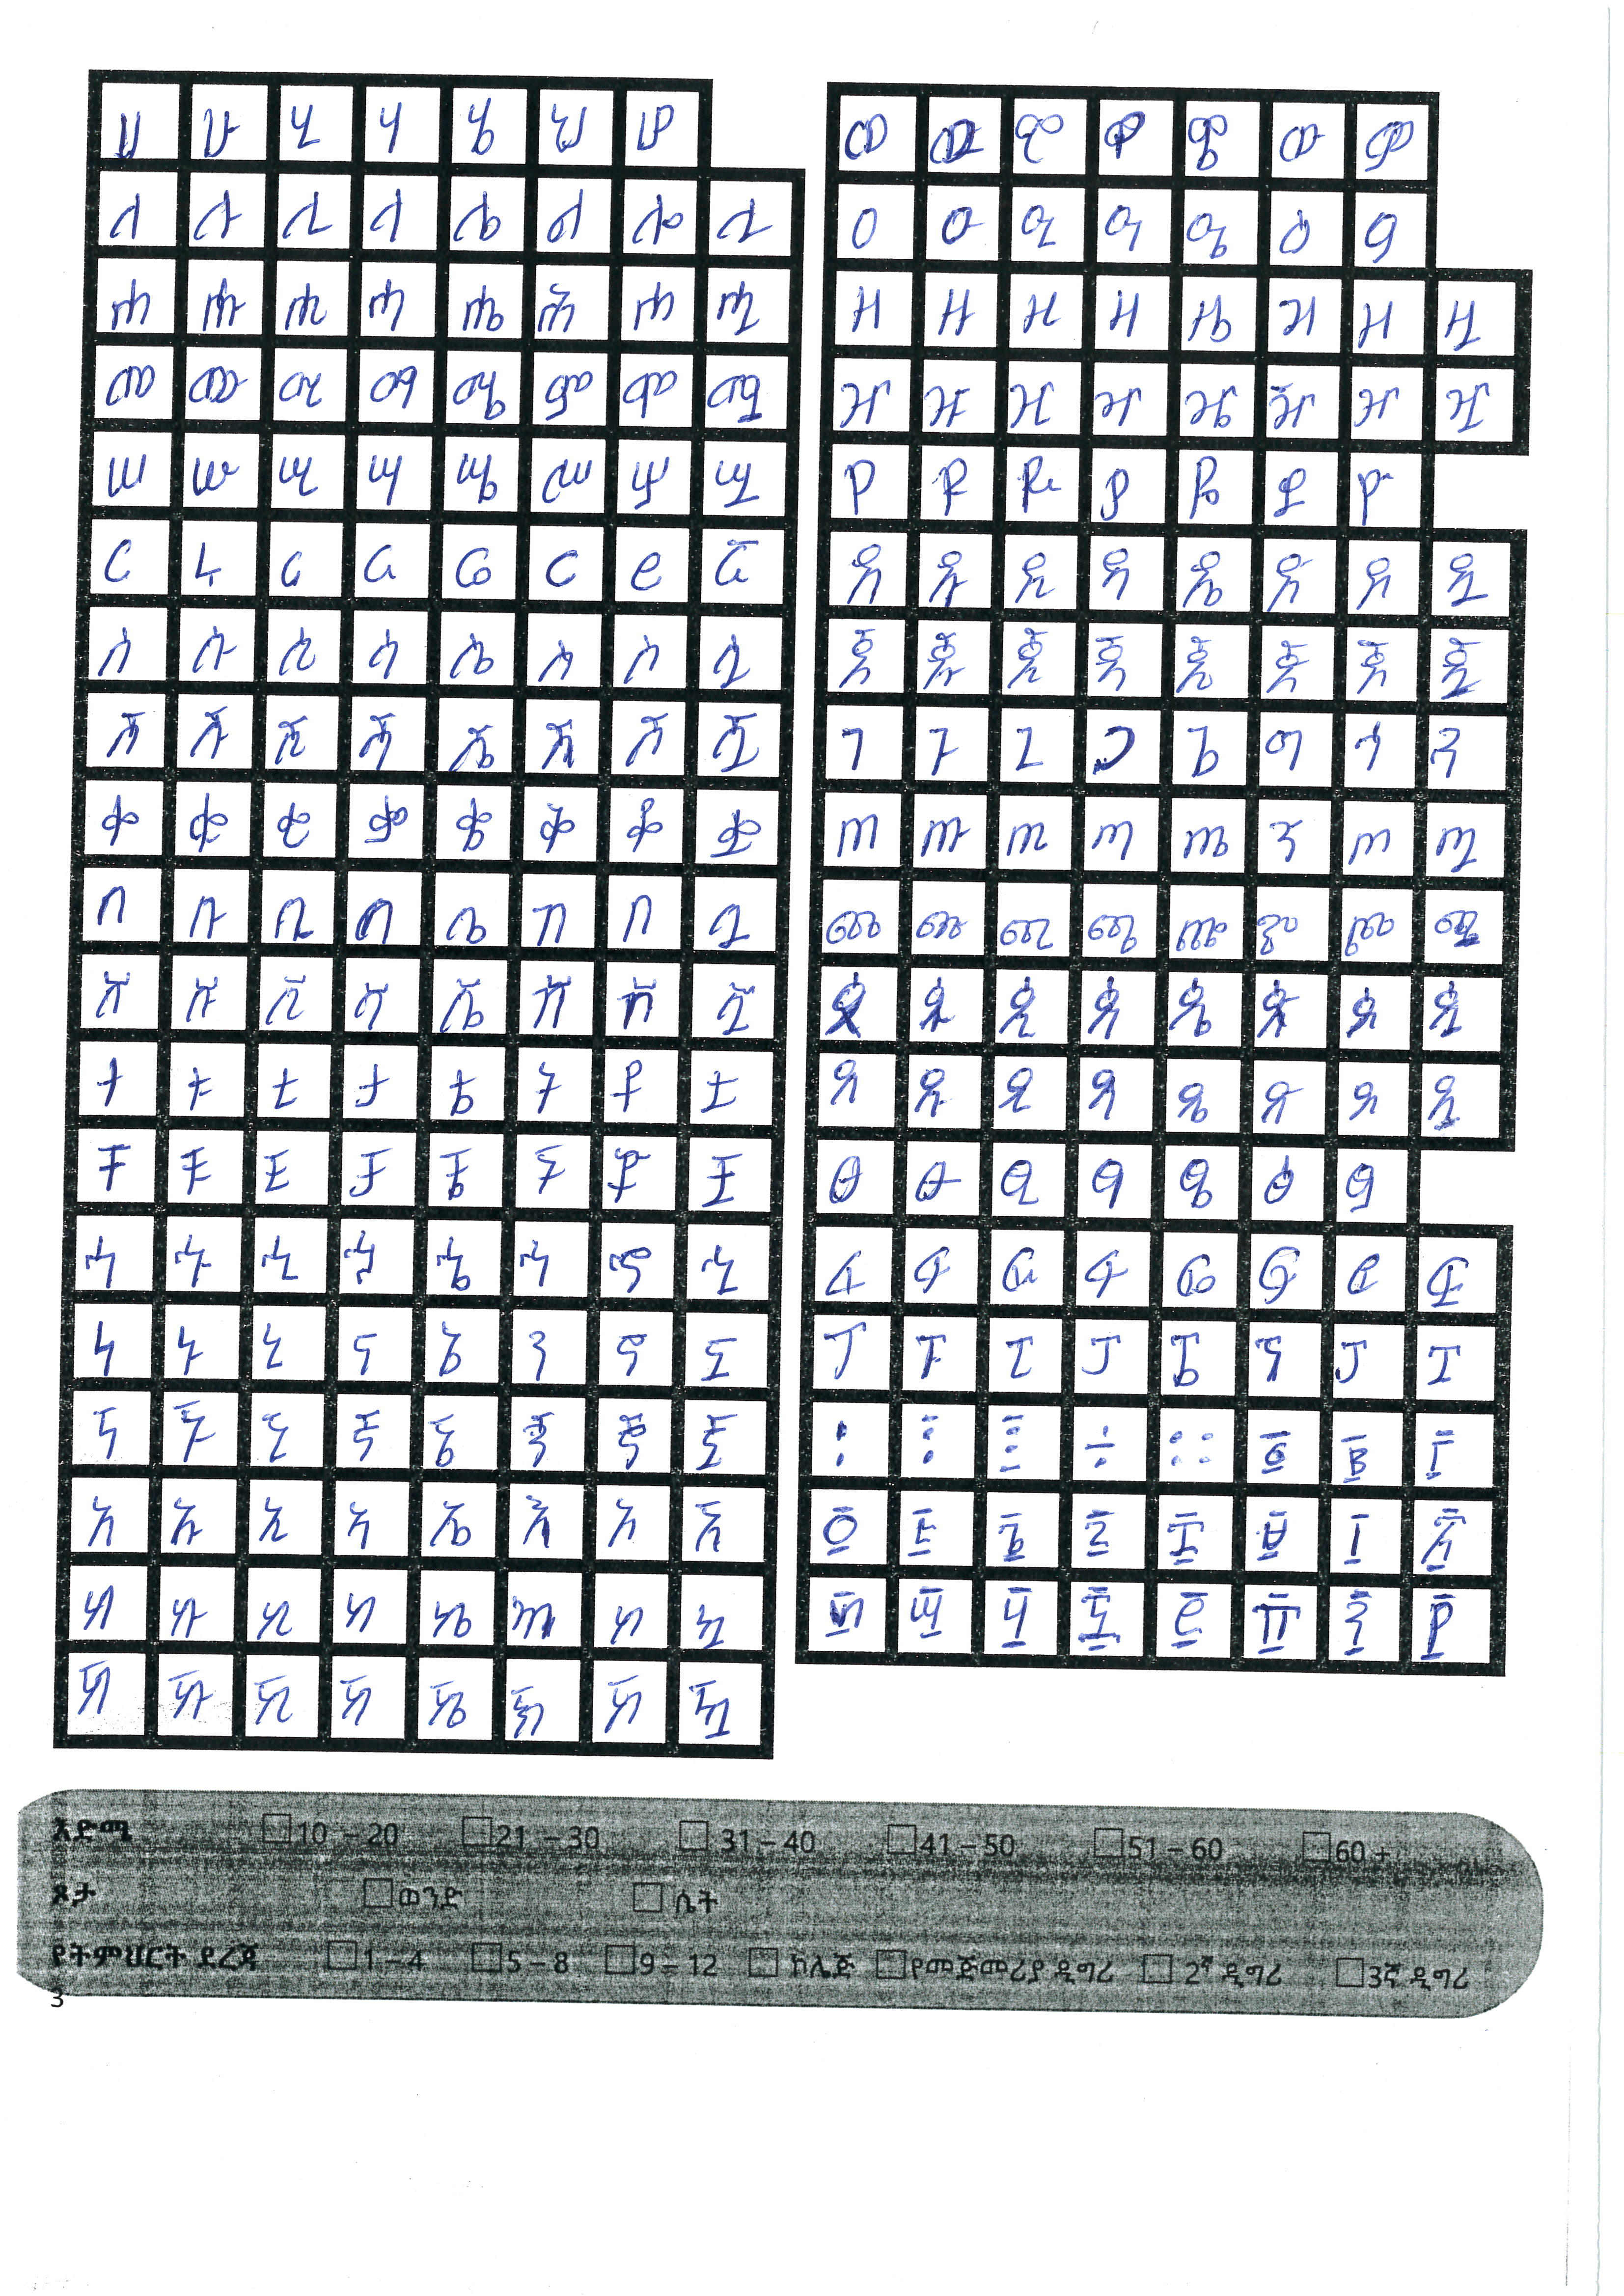 ሀ ሁ ሂ ሃ ሄ ህ ሆ
ለ ሉ ሊ ላ ሌ ል ሎ ሏ
ሐ ሑ ሒ ሓ ሔ ሕ ሖ ሗ
መ ሙ ሚ ማ ሜ ም ሞ ሟ
ሠ ሡ ሢ ሣ ሤ ሥ ሦ ሧ
ረ ሩ ሪ ራ ሬ ር ሮ ሯ
ሰ ሱ ሲ ሳ ሴ ስ ሶ ሷ
ሸ ሹ ሺ ሻ ሼ ሽ ሾ ሿ
ቀ ቁ ቂ ቃ ቄ ቅ ቆ ቋ
በ ቡ ቢ ባ ቤ ብ ቦ ቧ
ቨ ቩ ቪ ቫ ቬ ቭ ቮ ቯ
ተ ቱ ቲ ታ ቴ ት ቶ ቷ
ቸ ቹ ቺ ቻ ቼ ች ቾ ቿ
ኀ ኁ ኂ ኃ ኄ ኅ ኆ ኋ
ነ ኑ ኒ ና ኔ ን ኖ ኗ
ኘ ኙ ኚ ኛ ኜ ኝ ኞ ኟ
አ ኡ ኢ ኣ ኤ እ ኦ ኧ
ከ ኩ ኪ ካ ኬ ክ ኮ ኳ
ኸ ኹ ኺ ኻ ኼ ኽ ኾ ዃ
ወ ዉ ዊ ዋ ዌ ው ዎ
ዐ ዑ ዒ ዓ ዔ ዕ ዖ
ዘ ዙ ዚ ዛ ዜ ዝ ዞ ዟ
ዠ ዡ ዢ ዣ ዤ ዥ ዦ ዧ
የ ዩ ዪ ያ ዬ ይ ዮ
ደ ዱ ዲ ዳ ዴ ድ ዶ ዷ
ጀ ጁ ጂ ጃ ጄ ጅ ጆ ጇ
ገ ጉ ጊ ጋ ጌ ግ ጎ ጓ
ጠ ጡ ጢ ጣ ጤ ጥ ጦ ጧ
ጨ ጩ ጪ ጫ ጬ ጭ ጮ ጯ
ጰ ጱ ጲ ጳ ጴ ጵ ጶ ጷ
ጸ ጹ ጺ ጻ ጼ ጽ ጾ ጿ
ፀ ፁ ፂ ፃ ፄ ፅ ፆ
ፈ ፉ ፊ ፋ ፌ ፍ ፎ ፏ
ፐ ፑ ፒ ፓ ፔ ፕ ፖ ፗ
፩ ፪ ፫
፬ ፭ ፮ ፯ ፰ ፱ ፲ ፳
፴ ፵ ፶ ፷ ፸ ፹ ፺ ፻
እድሜ 10 – 20 21 – 30 31 – 40 41 – 50 51 – 60 60 +
ጾታ ወንድ ሴት
የትምህርት ደረጃ 1 – 4 5 – 8 9 – 12 ኮሌጅ የመጀመሪያ ዲግሪ 2ኛ ዲግሪ 3ኛ ዲግሪ
3